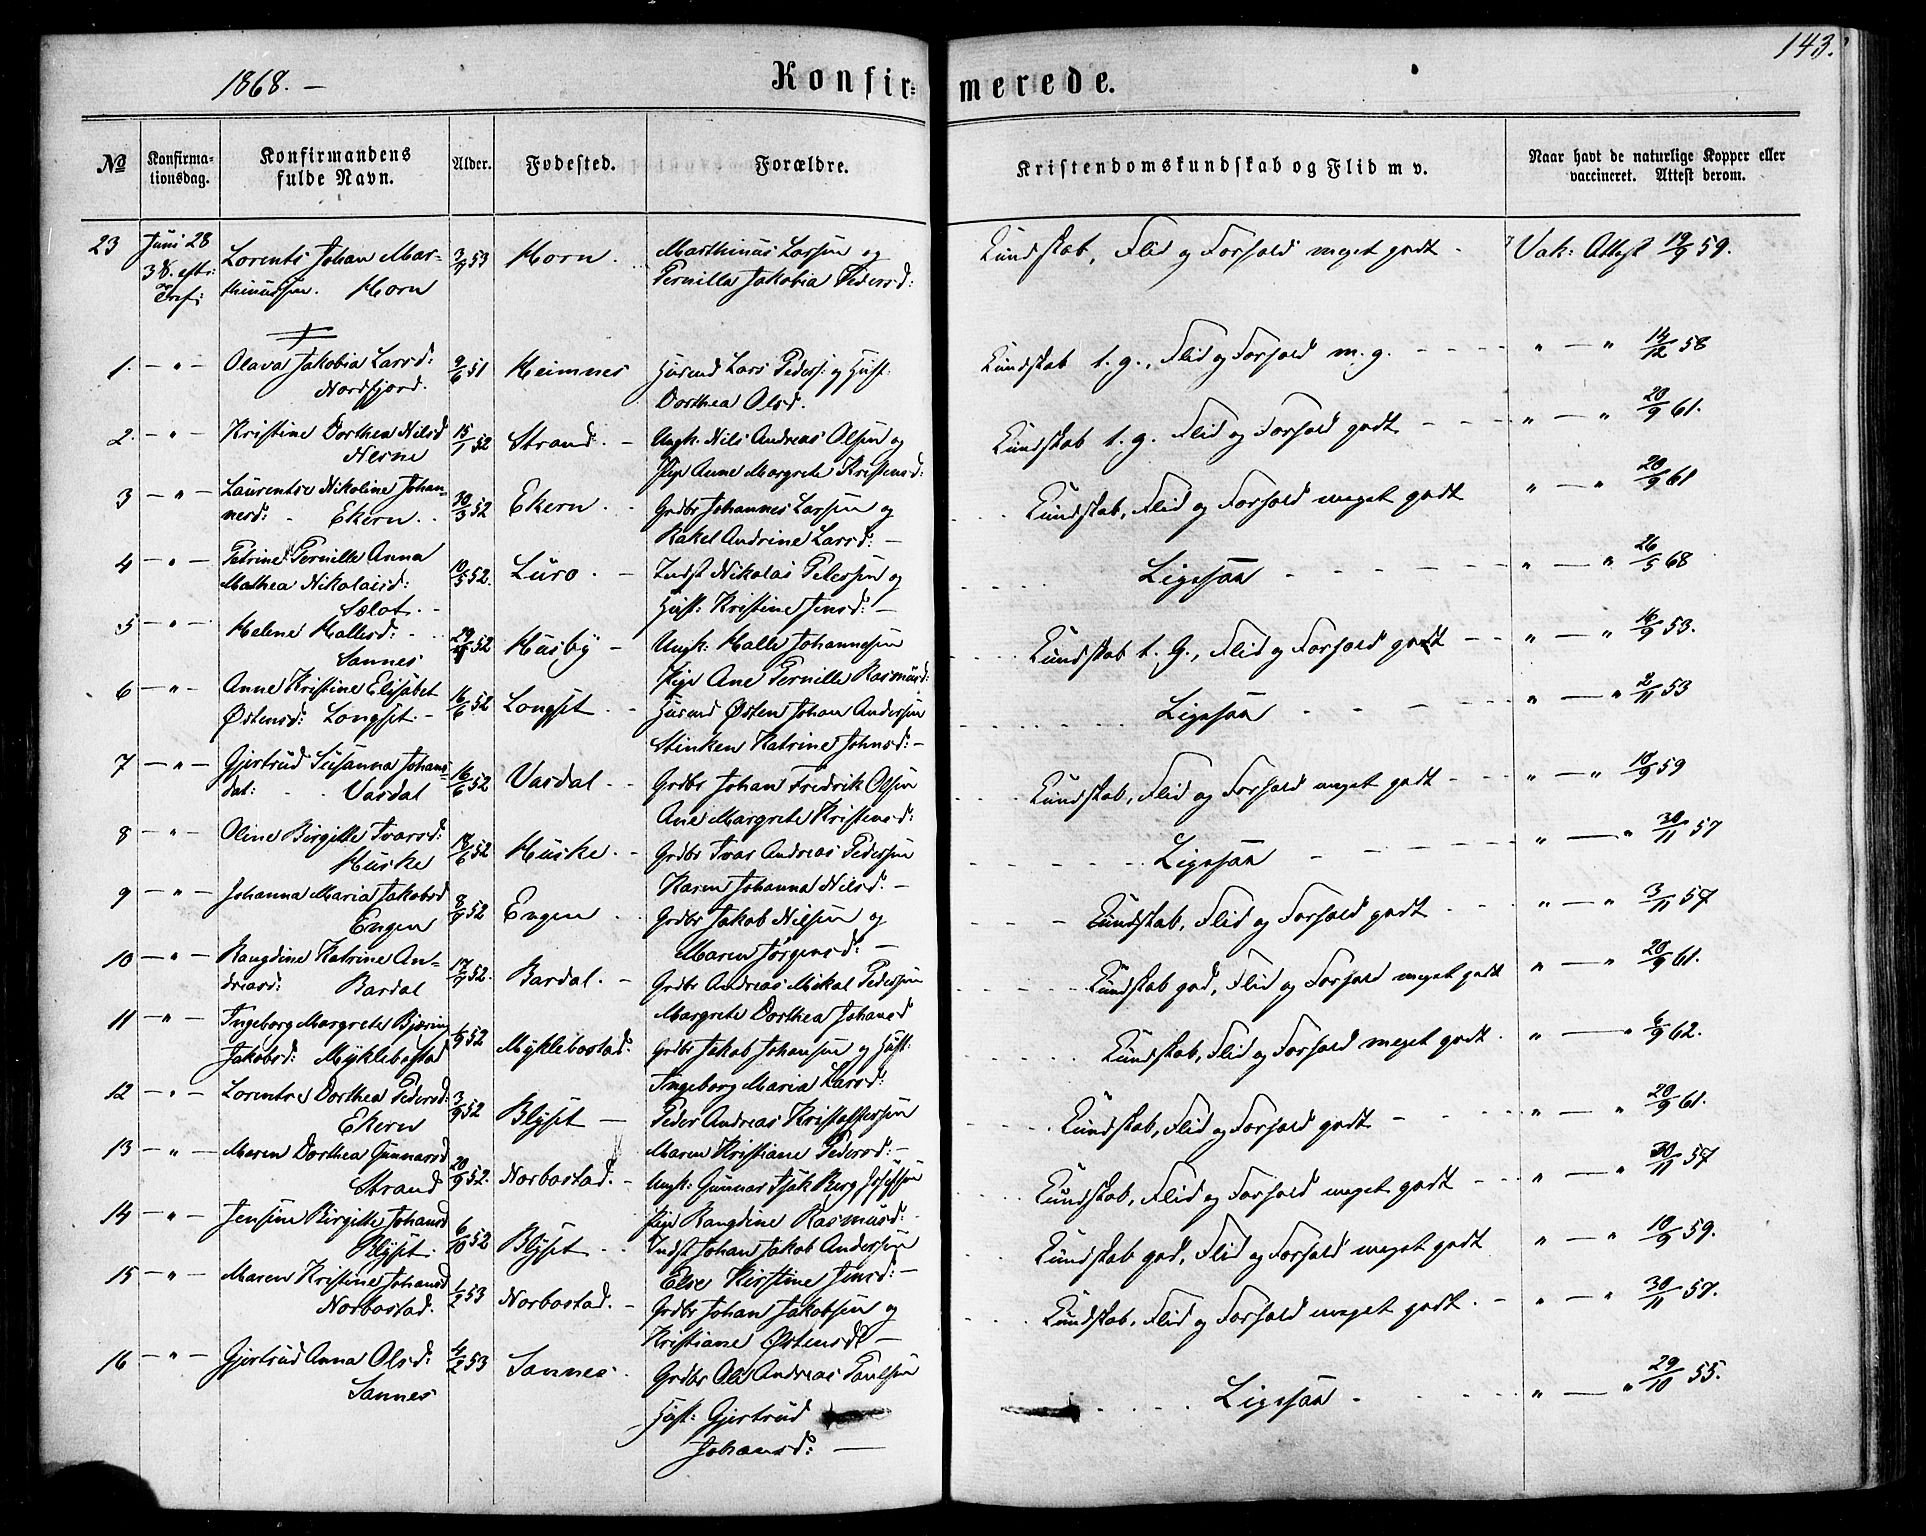 143.
1868. –
Konfir= merede.
№ Konfirma-tionsdag. Konfirmandens fulde Navn. Alder. Fødested. Forældre. Kristendomskundskab og Flid m v. Naar havt de naturlige Kopper eller vaccineret. Attest derom.
23 Juni 28 Lorents Johan Mar- 3/4 53 Horn. Marthinus Larsen og Kundskab, Flid og Forhold meget godt - Vak: Attest 19/9 59.
3 S. eft: thinussen. Horn Pernilla Jakobia Peders d:
Tref:
1. – " – Olava Jakobia Larsd: 9/6 51 Heimnes Husmd Lars Peders: og Hust: Kundskab t. g., Flid og Forhold m. g. - - - " – " 14/12 58
Nordfjord. Dorthea Olsd.
2. – " – Kristine Dorthea Nilsd 15/1 52 Strand. – Ungk: Nils Andreas Olsen og Kundskab t. g. Flid og Forhold godt - - - " – " 20/9 61.
Nesne Pige Anne Margrete Kristensd:
3 – " – Laurentse Nikoline Johan- 30/3 52 Ekern. - Grdbr Johannes Larsen og Kundskab, Flid og Forhold meget godt " – " 20/9 61
nesd: - Ekern. - Rakel Andrine Larsd: –
4 – " – Petrine Pernille Anna 10/5 52. Luro. – Indst Nikolai Pedersen og Ligesaa - - - " – " 26/5 68
Mathea Nikolaisd: Hust: Kristine Jensd: –
Selot. -
5 – " – Helene Hallesd: - 29/4 52 Husby – Ungk: Halle Johannesen Kundskab t. G., Flid og Forhold godt - - " – " 14/9 53.
Sannes Pige Ane Pernille Rasmusd:
6 – " – Anne Kristine Elisabet 16/6 52 Longset. - Husmd Østen Johan Andersen Ligesaa - - - " – " 2/11 53
Østensd: Longset. - Stinken Katrine Johnsd: –
7 – " – Gjertrud Susanna Johans- 16/6 52 Vasdal. - Grdbr Johan Fredrik Olsen Kundskab, Flid og Forhold meget godt - - " – " 10/9 59
dat: - - Vasdal Ane Margrete Kristensd:
8 – " – Oline Birgitte Ivarsd: 17/6 52 Huske. - Grdbr Ivar Andreas Pedersen Ligesaa - - - " – " 30/11 57
Huske Karen Johanna Nilsd: –
9 – " – Johanna Maria Jakobsd 8/7 52 Engen. - Grdbr Jakob Nilsen og Kundskab, Flid og Forhold godt - - - " – " 3/11 57
Engen Maren Jørgensd: –
10 – " – Rangdine Katrine An- 17/7 52. Bardal. – Grdbr Andreas Mikal Pedersen Kundskab god, Flid og Forhold meget godt " – " 20/9 61.
dreasd: Bardal Margrete Dorthea Johansd
11 – " – Ingeborg Margrete Bjæring 1/9 52 Myklebostad. Grdbr Jakob Johansen og Hust: Kundskab, Flid og Forhold meget godt. " – " 6/9 62.
Jakobsd: Myklebostad Ingeborg Maria Larsd:
12 – " – Lorentse Dorthea Pedersd: 3/9 52 Blyset – Peder Andreas Kristoffersen Kundskab, Flid og Forhold godt - - " – " 20/9 61.
Ekern Maren Kristiane Pedersd: –
13 – " – Maren Dorthea Gunnarsd 20/9 52. Norbostad. – Ungk: Gunnar Isak Berg Kundskab, Flid og Forhold meget godt - - " – " 30/11 57
Strand Pige Rangdine Rasmusd:
14 – " – Jensine Birgitte Johansd 6/10 52 Blyset - Indst Johan Jakob Andersen Kundskab god, Flid og Forhold meget godt " – " 10/9 59.
Blyset. Else Kirstine Jensd: –
15 – " – Maren Kristine Johansd 1/2 53 Norbostad. – Grdbr Johan Jakobsen og Kundskab, Flid og Forhold meget godt. – " – " 30/11 57.
Norbostad. Kristiane Østensd –
16 – " – Gjertrud Anna Olsd: 4/2 53 Sannes. Grdbr Ole Andreas Paulsen Ligesaa - - - " – " 29/10 55.
Sannes Hust: Gjertrud
Johansd: –